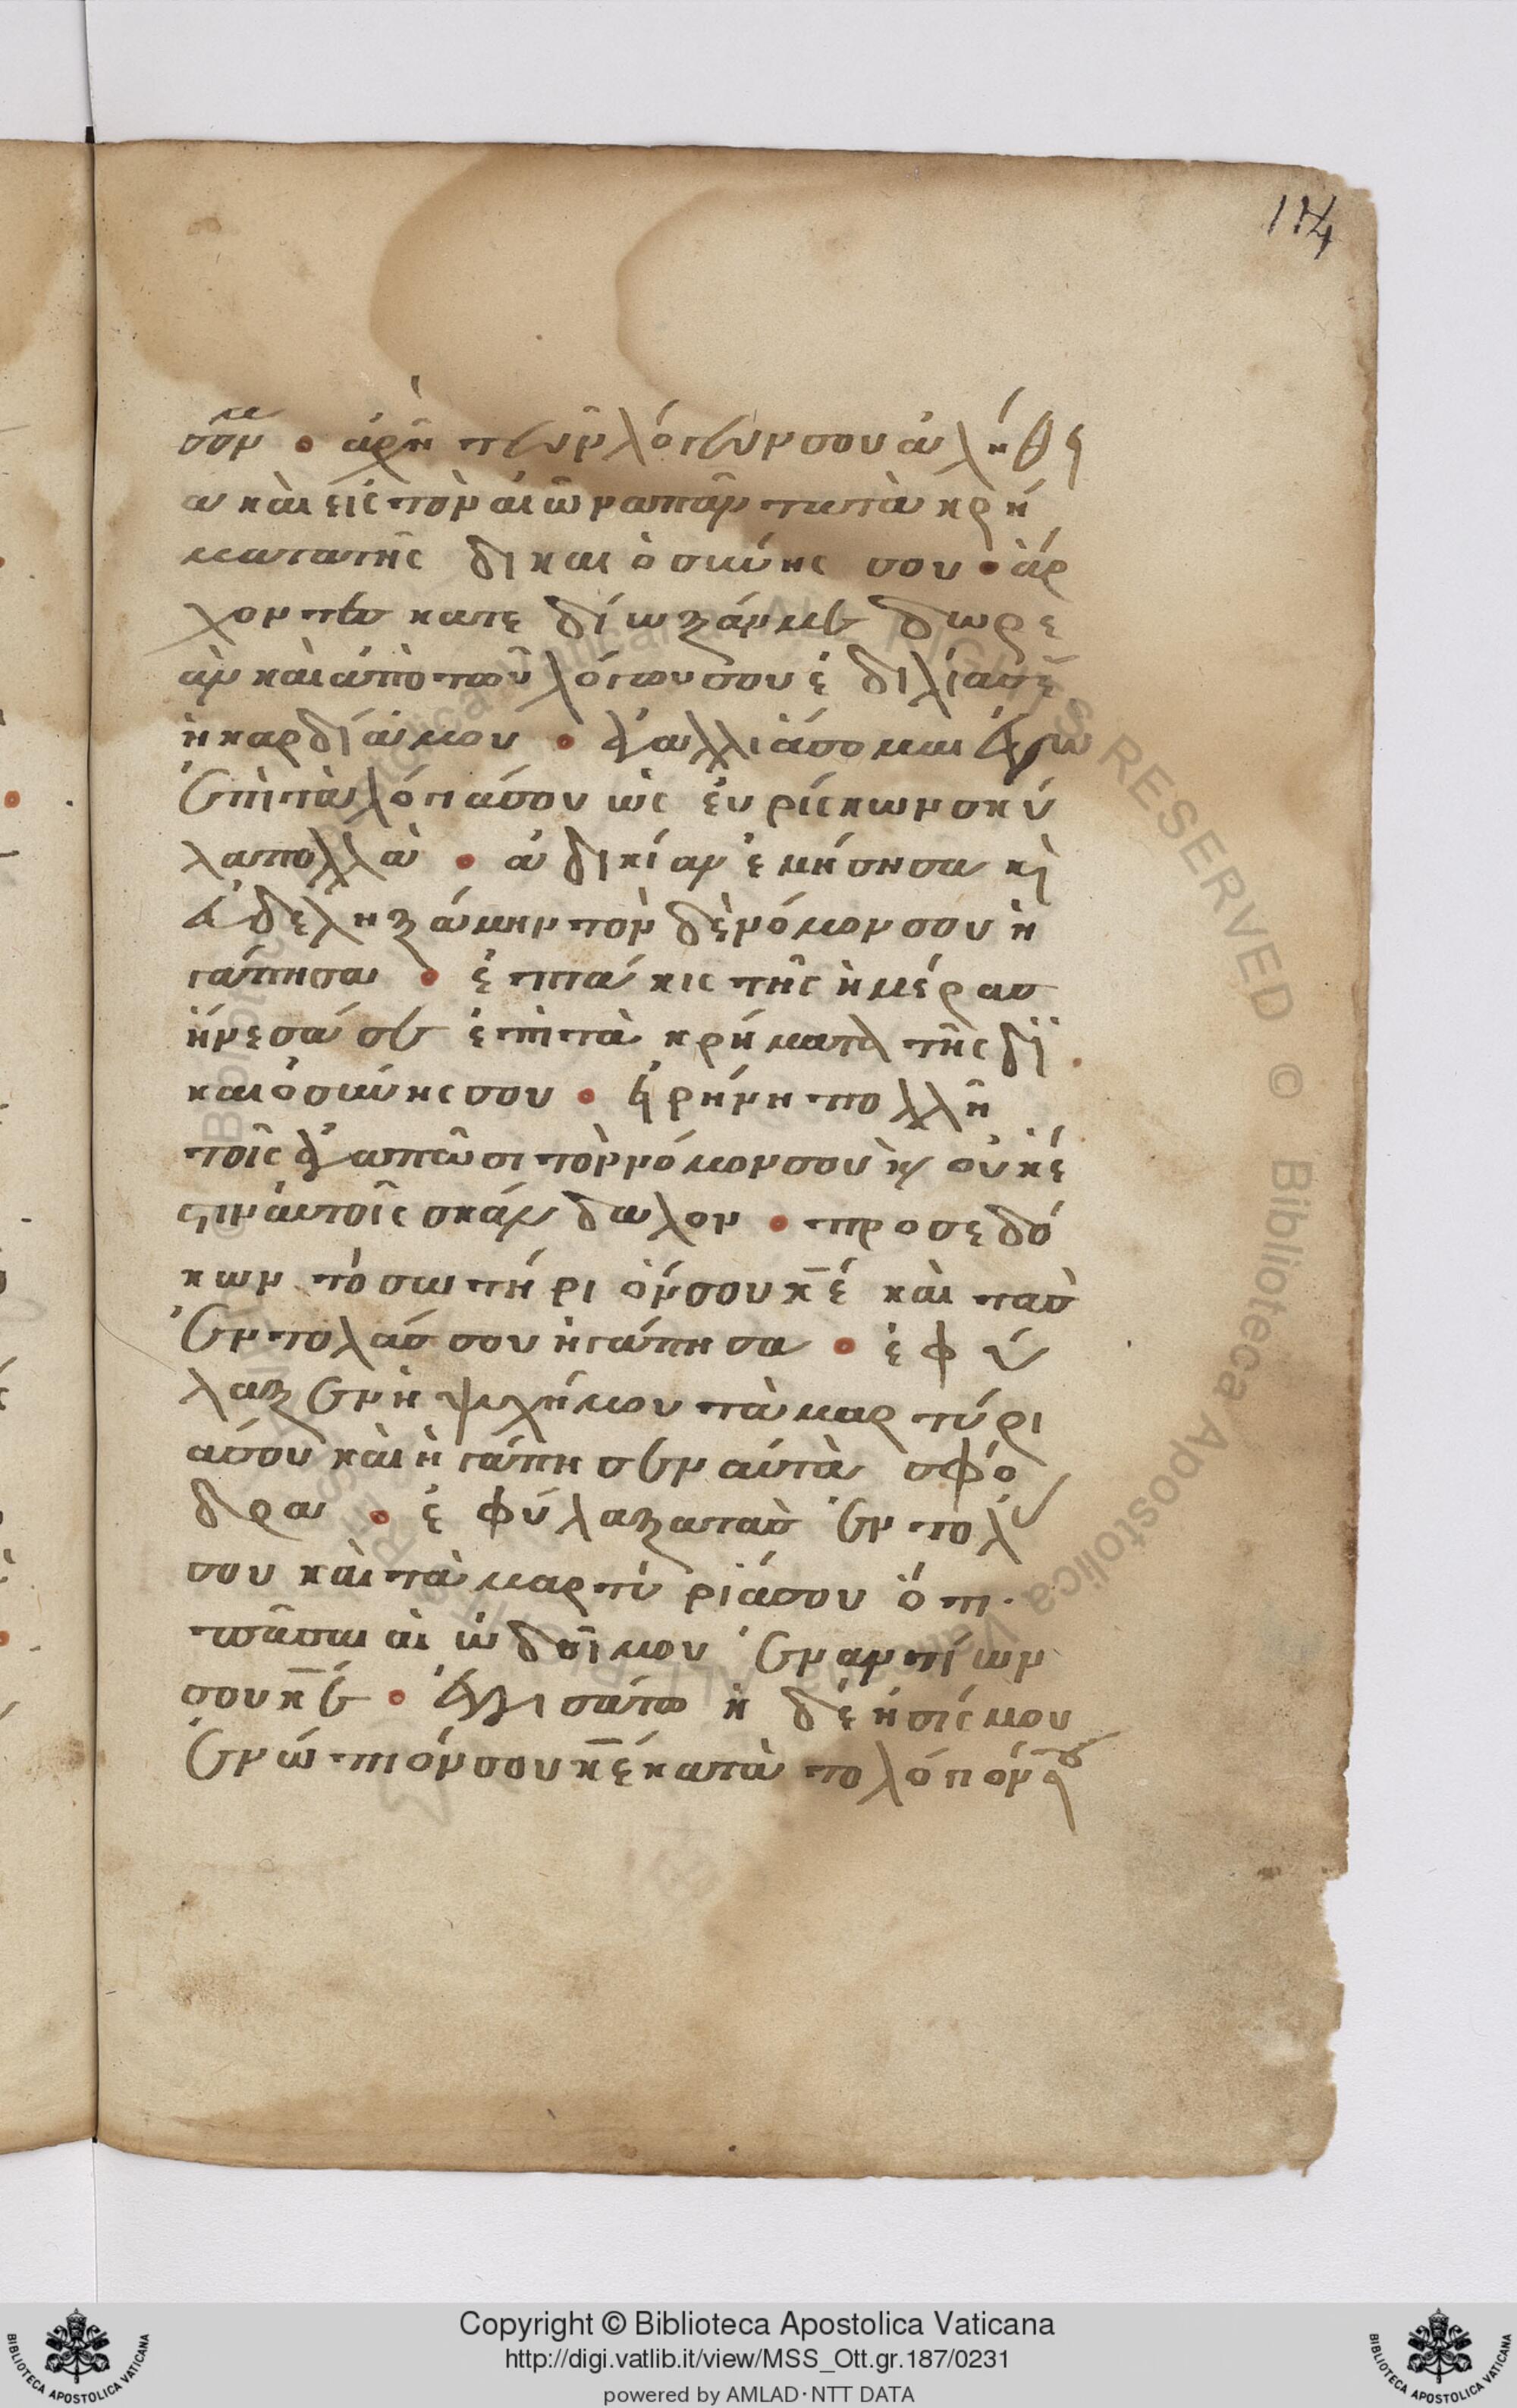 114
σόν με • ἀρχὴ τῶν λόγων σου ἀλήθει
α καὶ εἰς τὸν αἰῶνα πάντα τὰ κρή
ματα τῆς δικαιὀσύνης σου • ἄρ
χοντες κατεδίωξάν με δωρε
ὰν καὶ ἀπὸ τῶν λόγων σου ἐδιλίασε
ἡ καρδία μου • ἀγαλλιάσομαι ἐγω
ἐπὶ τὰ λόγιά σου ὡς ἑυρίσκων σκύ
λα πολλὰ • ἀδικίαν ἐμήσησα κὶ
ἐβδεληξάμην τὸν δὲ νόμον σου ἠ
γάπησα • ἑπτάκις τῆς ἡμέρας
ἤνεσά σε ἐπὶ τὰ κρήματα τῆς δϊ
καιὀσύνης σου • εἰρήνη πολλῆ
τοῖς ἀγαπῶσι τὸν νόμον σου κὶ οὐκ έ
στιν αὐτοῖς σκάνδαλον • προσεδό
κων τὸ σωτήριόν σου κ̅ε̅ καὶ τὰς
ἐντολάς σου ἠγάπησα • ἐφύ
λαξεν ἡ ψυχή μου τὰ μαρτύρι
ά σου καὶ ἠγάπησεν αὐτὰ σφό
δρα • ἐφύλαξα τὰς ἐντολάς
σου καὶ τὰ μαρτύριά σου ὅτι
πᾶσαι αἱ ὡδοῖ μου ἐναντίων
σου κ̅ε̅ • ἐγγισάτω ἡ δέησίς μου
ἐνώπιόν σου κ̅ε̅ κατὰ το λόγιόν σου
Copyright © Biblioteca Apostolica Vaticana
http://digi.vatlib.it/view/MSS_Ott.gr.187/0231
powered by AMLAD·NTT DATA